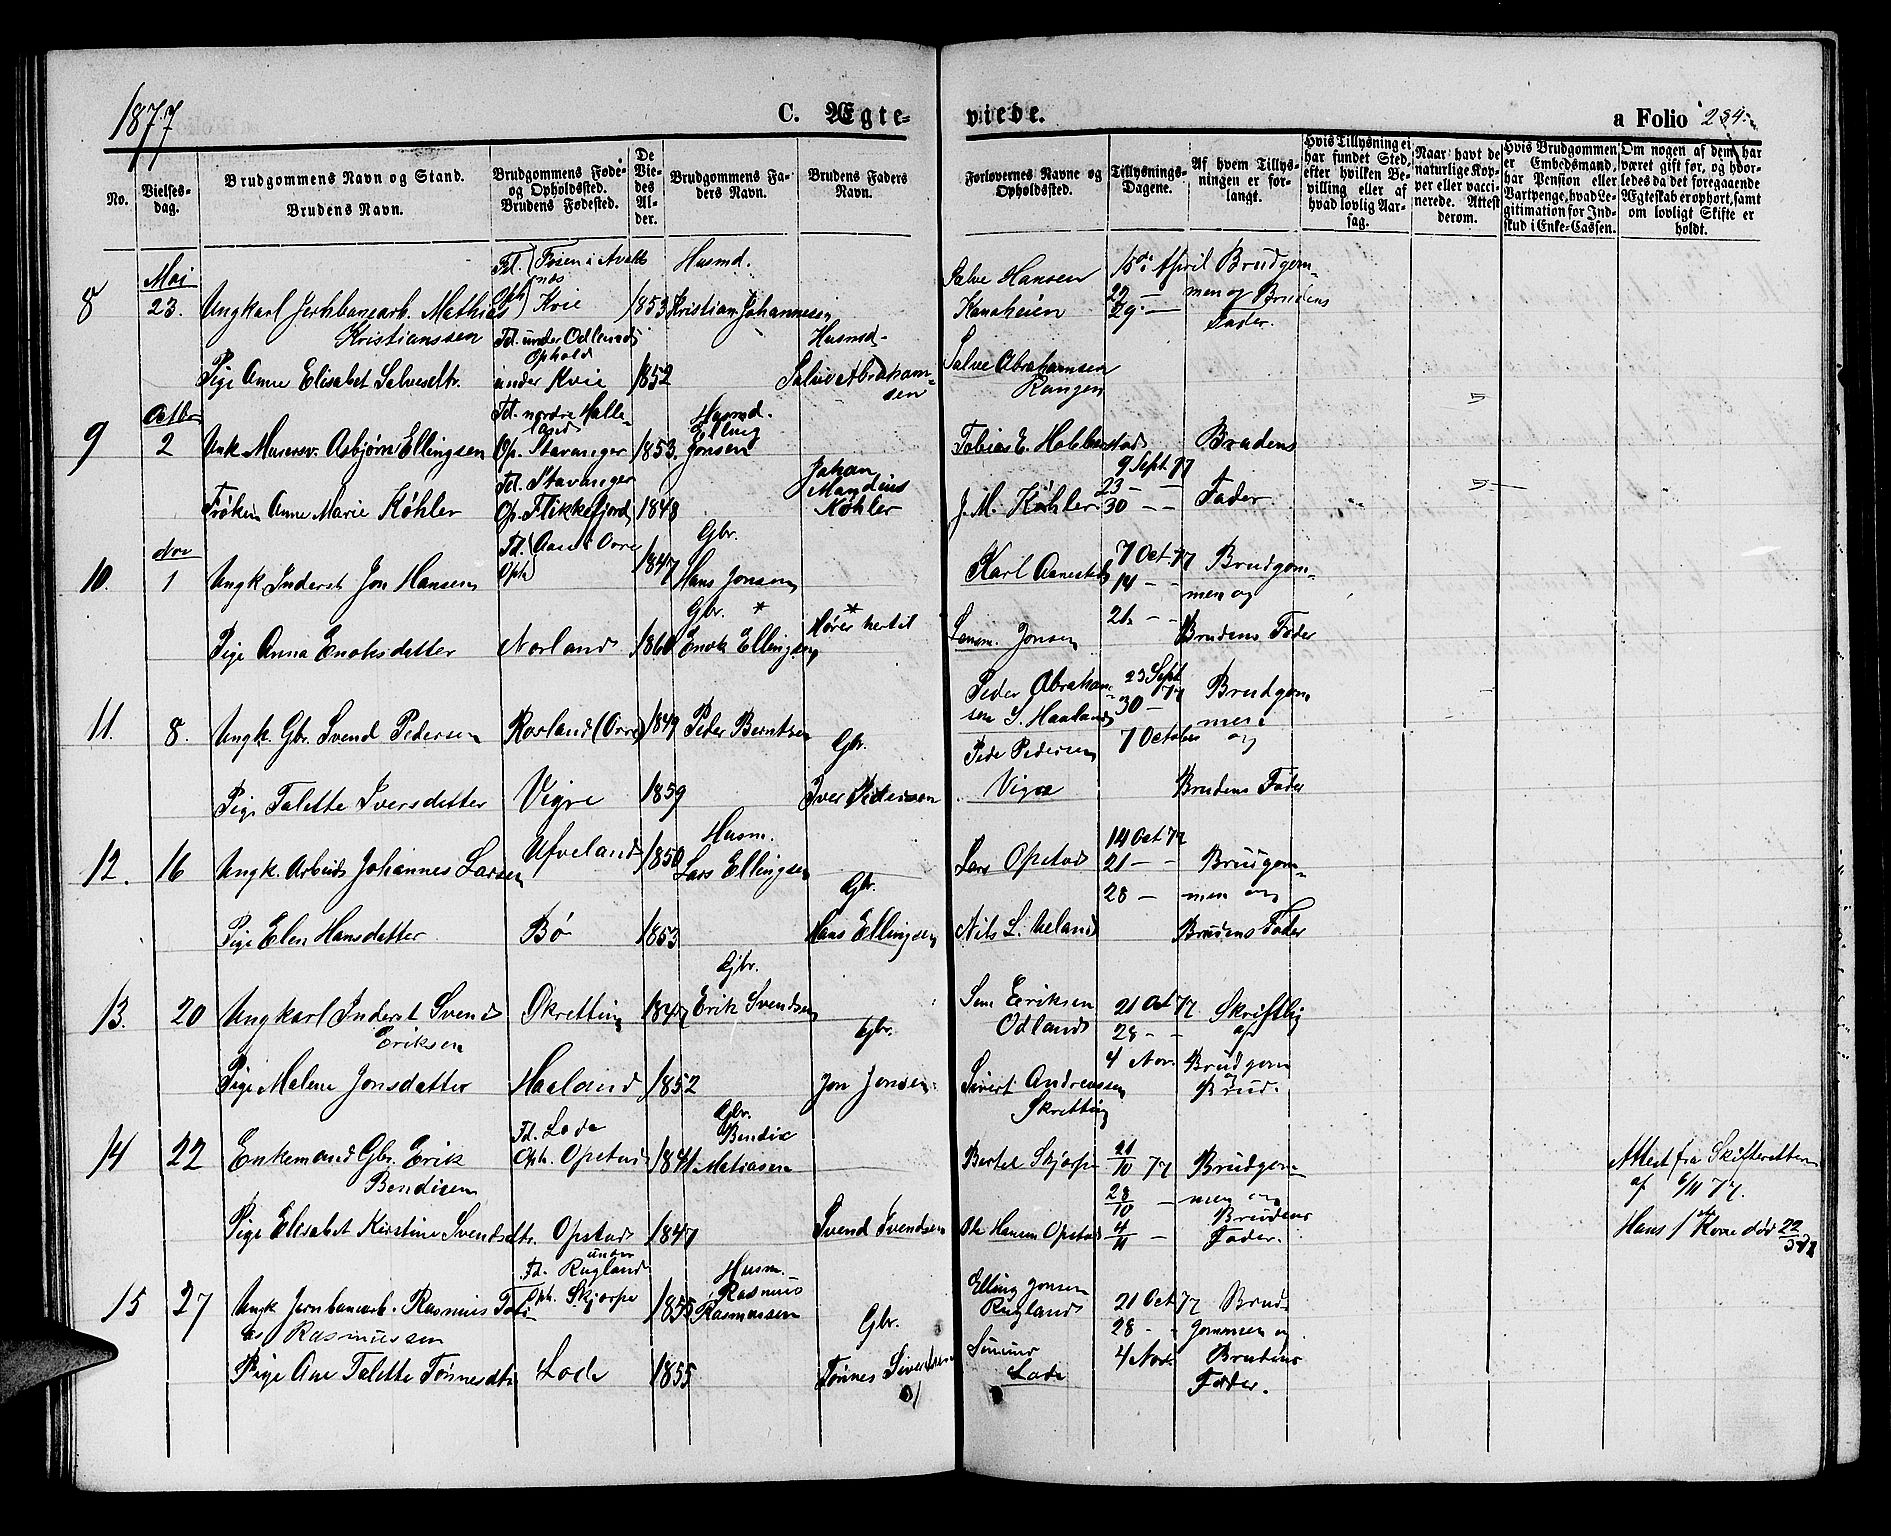 1877
C. Ægte-
viede.
a Folio 234.
No.
Vielses-
dag.
Brudgommens Navn og Stand.
Brudens Navn.
Brudgommens Føde-
og Opholdssted.
Brudens Fødested.
De
Vie-
des
Al-
der.
Brudgommens Fa-
ders Navn.
Brudens Faders
Navn.
Forlovernes Navne og
Opholdssted.
Tillysnings-
Dagene.
Af hvem Tillys-
ningen er for-
langt.
Hvis Tillysning ei
har fundet Sted,
efter hvilken Be-
villing eller af
hvad lovlig Aar-
sag.
Naar havt de
naturlige Kop-
per eller vacci-
nerede. Attest
derom.
Hvis Brudgommen
er Embedsmand,
har Pension eller
Vartpenge, hvad Le-
gitimation for Ind-
skud i Enke-Cassen.
Om nogen af dem har
været gift før, og hvor-
ledes da det foregaaende
Ægteskab er ophørt, samt
om lovligt Skifte er
holdt.
8
Mai
23.
Ungkarl Jernbanearb. Mathias
Kristianssen
Fd. Føsen i Avalds
næs
Oph. Kvie
1853
Husmd.
Kristian Johannesen
Salve Hansen
Kanaheien
15de April
22 —
29 —
Brudgom-
men og Brudens
Fader.
Pige Anne Elisabet Salvesdtr.
Fd. under Odland
Ophold
under Kvie
1852
Husmd.
Salve Abraham-
sen
Salve Abrahamsen
Rangen
9
Octbr
2
Unk. Murersv. Asbjørn Ellingsen
Fd. nordre Halle-
land
Op. Stavanger
1853.
Husmd.
Elling
Jonsen
Tobias E. Hobberstad
9 Sept 77
23 — —
30 — —
Brudens
Fader.
Frøken Anne Marie Køhler
Fd. Stavanger
Op. Flikkefjord
1848
Johan
Mandius
Køhler
J. M. Køhler
10.
Nov
1
Ungk Inderst Jon Hansen
Fd. Oph. Aan i Orre
1847
Gbr.
Hans Jonsen
Karl Aanestad
7 Oct. 77
14 — —
21. — —
Brudgom-
men og
Brudens Fader
Pige Anna Enoksdatter
Norland
1860
Gbr. *
Enok Ellingsen
*
Hører hertil
Jonsen
11.
8.
Ungk. Gbr. Svend Pedersen
Rorland (Orre)
1849
Peder Berntsen
Peder Abraham-
sen S. Haaland
23 Sept
30 — 77
7 October
Brudgom-
men
og
Brudens Fader
Pige Talette Iversdatter
Vigre
1859
Gbr.
Iver Pedersen
Peder Pedersen
Vigre
12.
16
Ungk. Arbeids Johannes Larsen
Ueland
1850
Husm.
Lars Ellingsen
Lars Opstad
14 Oct 77
21 — —
28 —
Brudgom-
men og
Brudens Fader
Pige Elen Hansdatter
Bø
1853
Gbr.
Hans Ellingsen
Nils L. Ueland
13.
20
Ungkarl Inderst Svend
Eriksen
Skretting
1847
Gbr.
Erik Svendsen
Sem Eriksen
Odland
21 Oct 77
28 — —
4 Nov.
Skriftlig
af
Brudgom
og
Brud.
Pige Malene Jonsdatter
Haaland
1852
Gbr.
Jon Jonsen
Sivert Andreassen
Skretting
14
22
Enkemand Gbr. Erik
Bendixen
Fd. Lode
Oph. Opstad
1841
Gbr.
Bendix
Matiasen
Bertel Skjorpe
21/10 77
28/10 —
4/11 —
Brudgom-
men og
Brudens
Fader.
Attest fra Skifteretten
af 6/11 77.
Hans 1ste Kone død 22/5 72
Pige Elisabet Kirstine Svendsdtr.
Opstad
1847
Svend Svendsen
Ole Hansen Opstad
15
27
Ungk Jernbanearb. Rasmus Tobi-
as Rasmussen
under
Fd. Rugland
Oph. Skjorpe
1855
Husm.
Rasmus
Rasmussen
Elling Jonsen
Rugland
21 Oct 77
28 —
4 Nov.
Brud-
gommen og
Brudens
Fader.
Pige Ane Talette Tønnesdtr
Lode
1855
Gbr.
Tønnes Sivertsen
Lode